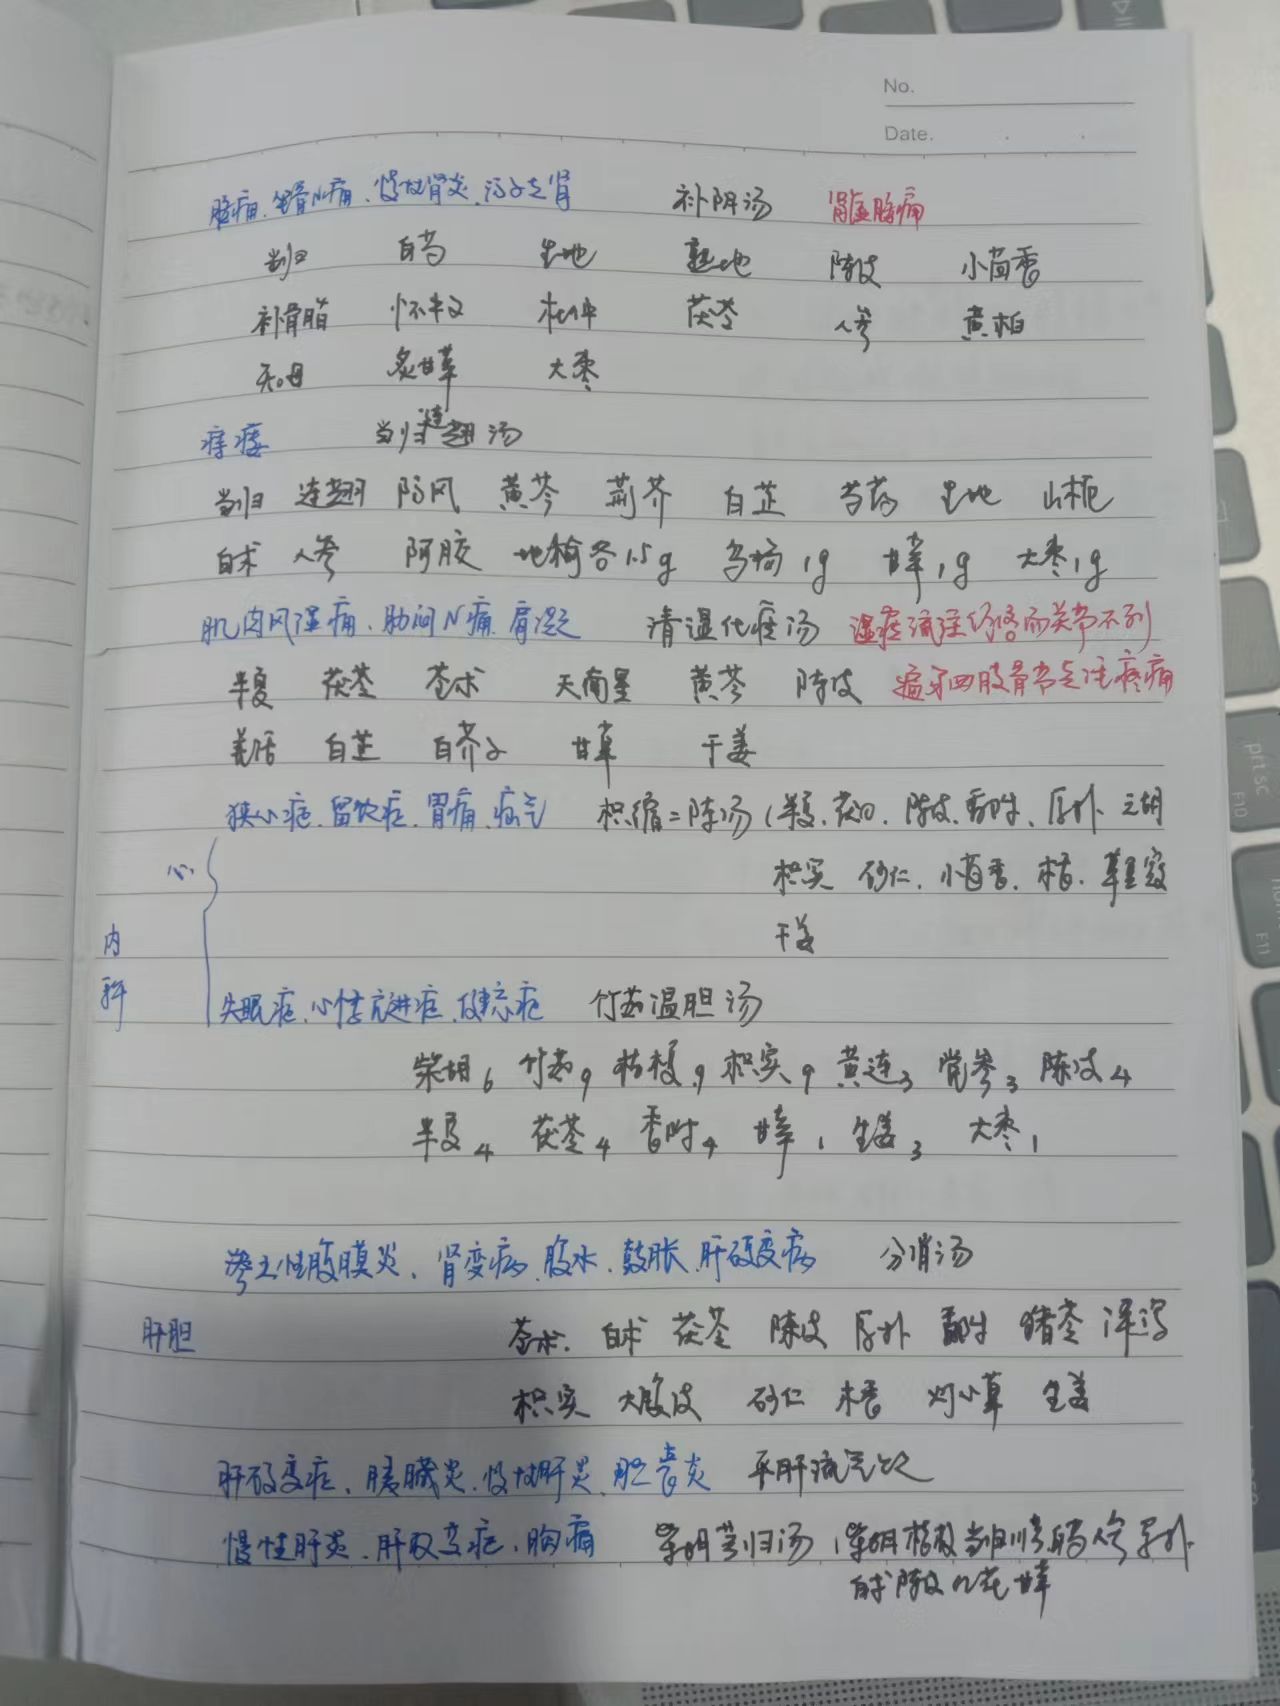 No.
Date.
腰痛、坐骨N痛、慢性肾炎、 补阴汤 肾虚腰痛
当归 白芍 生地 熟地 陈皮 小茴香
补骨脂 怀牛 杜仲 茯苓 人参 黄柏
知母 炙甘草 大枣
当归连翘汤
当归 连翘 防风 黄芩 荆芥 白芷 芍药 生地 山栀
白术 人参 阿胶 地榆各1.5g 乌梅1g 甘草1g 大枣1g
肌肉风湿痛、肋间N痛、肩凝 清湿化痰汤 湿痰流注经络而关节不利
半夏 茯苓 苍术 天南星 黄芩 陈皮 遍身四肢骨节走注疼痛
羌活 白芷 白芥子 甘草 干姜
狭心症、留饮症、胃痛、疝气 枳缩二陈汤(半夏、茯、陈皮、香附、厚朴、元胡
心
枳实 砂仁、小茴香、木香、草豆蔻
内 干姜
科 失眠症、心悸亢进症、健忘症 竹茹温胆汤
柴胡6 竹茹9 桔梗9 枳实9 黄连3 党参3 陈皮4
半夏4 茯苓4 香附4 甘草1 生姜3 大枣1
渗出性腹膜炎、肾变病、腹水、鼓胀、肝硬变病 分消汤
肝胆 苍术、白术 茯苓 陈皮 厚朴 香附 猪苓 泽泻
枳实 大腹皮 砂仁 木香 灯心草 生姜
肝硬变症、胰臓炎、慢性肝炎、胆囊炎 平肝流气饮
慢性肝炎、肝硬变症、胸痛 柴胡芎归汤(柴胡 桔梗 当归 川芎 白芍 人参 厚朴
白术 陈皮 红花 甘草